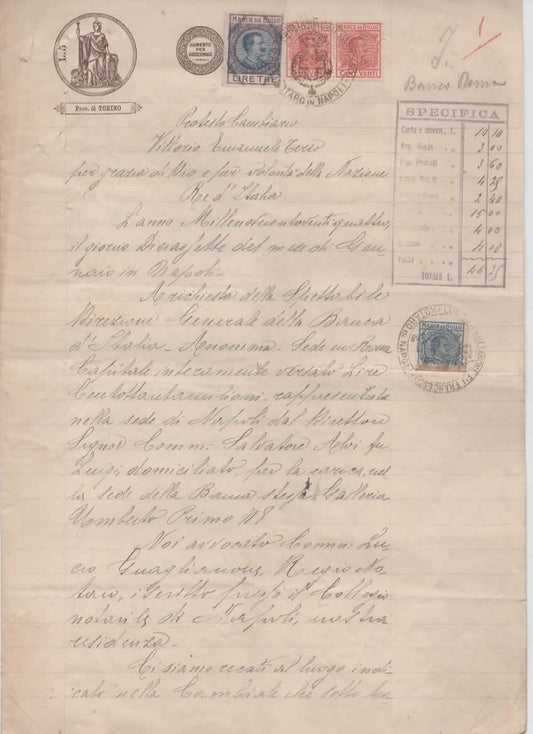 L.5
Prov. di TORINO
AUMENTO
PER
ADDIZIONALE
MARCA DA BOLLO
LIRE TRE
MARCA DA BOLLO
MARCA DA BOLLO
CENT. VENTI
IN NAPOLI
1
Banco Roma
SPECIFICA
Carta e marca, L. 10 10
Reg. 3 00
3 60
4 25
2 40
15 00
4 00
4 00
TOTALE L. 25
Protesto Cambiario
Vittorio Emanuele Terzo
per grazia di Dio e per volontà della Nazione
Re d'Italia
L'anno Millenovecentoventiquattro,
il giorno Diciassette del mese di Gen-
naio in Napoli.
A richiesta della Spettabile
Direzione Generale della Banca
d'Italia - Anonima Sede in Roma
Capitale interamente versato Lire
Centottantamilioni rappresentata
nella sede di Napoli dal Direttore
Signor Comm: Salvatore fu
Luigi domiciliato per la carica nel-
la sede della Banca stessa Galleria
Umberto Primo N8
MARCA DA BOLLO
Noi avvocato Comm: Lu-
cio Regio No-
taro, iscritto presso il Collegio
notarile di Napoli, nostra
residenza.
Ci siamo recati al luogo indi-
cato nella Cambiale che sotto